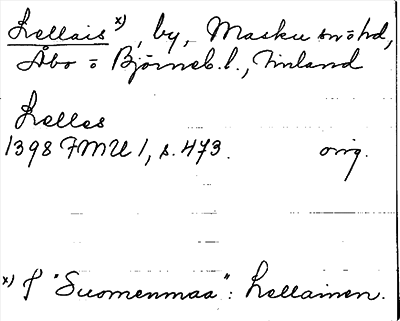 Lellais x), by, Masku sn o hd,
Åbo o Björneb. l., Finland
Lelles
1398 FMU 1, s. 473. orig.
x) I "Suomenmaa": Lellainen.